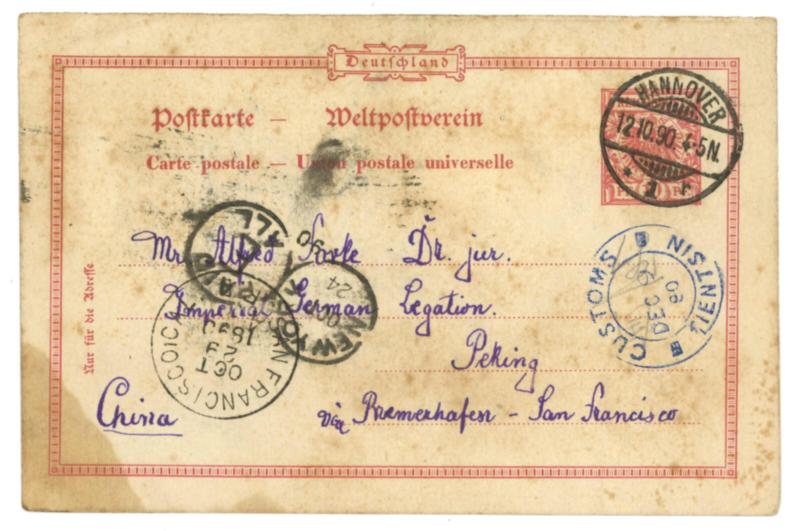 Deutschland
Postkarte — Weltpostverein
Carte postale — Union postale universelle
HANNOVER
12.10.90. 4-5N.
* 1 r
Nur für die Adresse
Mr. Alfred Forke Dr. jur.
Imperial German Legation.
Peking
China
via Bremerhafen - San Francisco
CUSTOMS TIENTSIN
DEC
90
NEW YORK
OCT
24
90
ALL
SAN FRANCISCO
OCT
29
1890